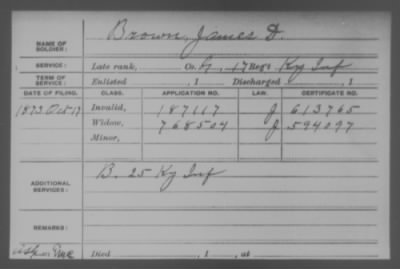 NAME OF SOLDIER: Brown, James D.
SERVICE: Late rank, Co. G, 17 Reg't Ky Inf
TERM OF SERVICE: Enlisted , 1 Discharged , 1
DATE OF FILING. CLASS. APPLICATION NO. LAW. CERTIFICATE NO.
1873 Oct 17 Invalid, 187117 J 613765
Widow, 768504 J 594097
Minor,
ADDITIONAL SERVICES: B. 25 Ky Inf
REMARKS:
Died , 1 , at